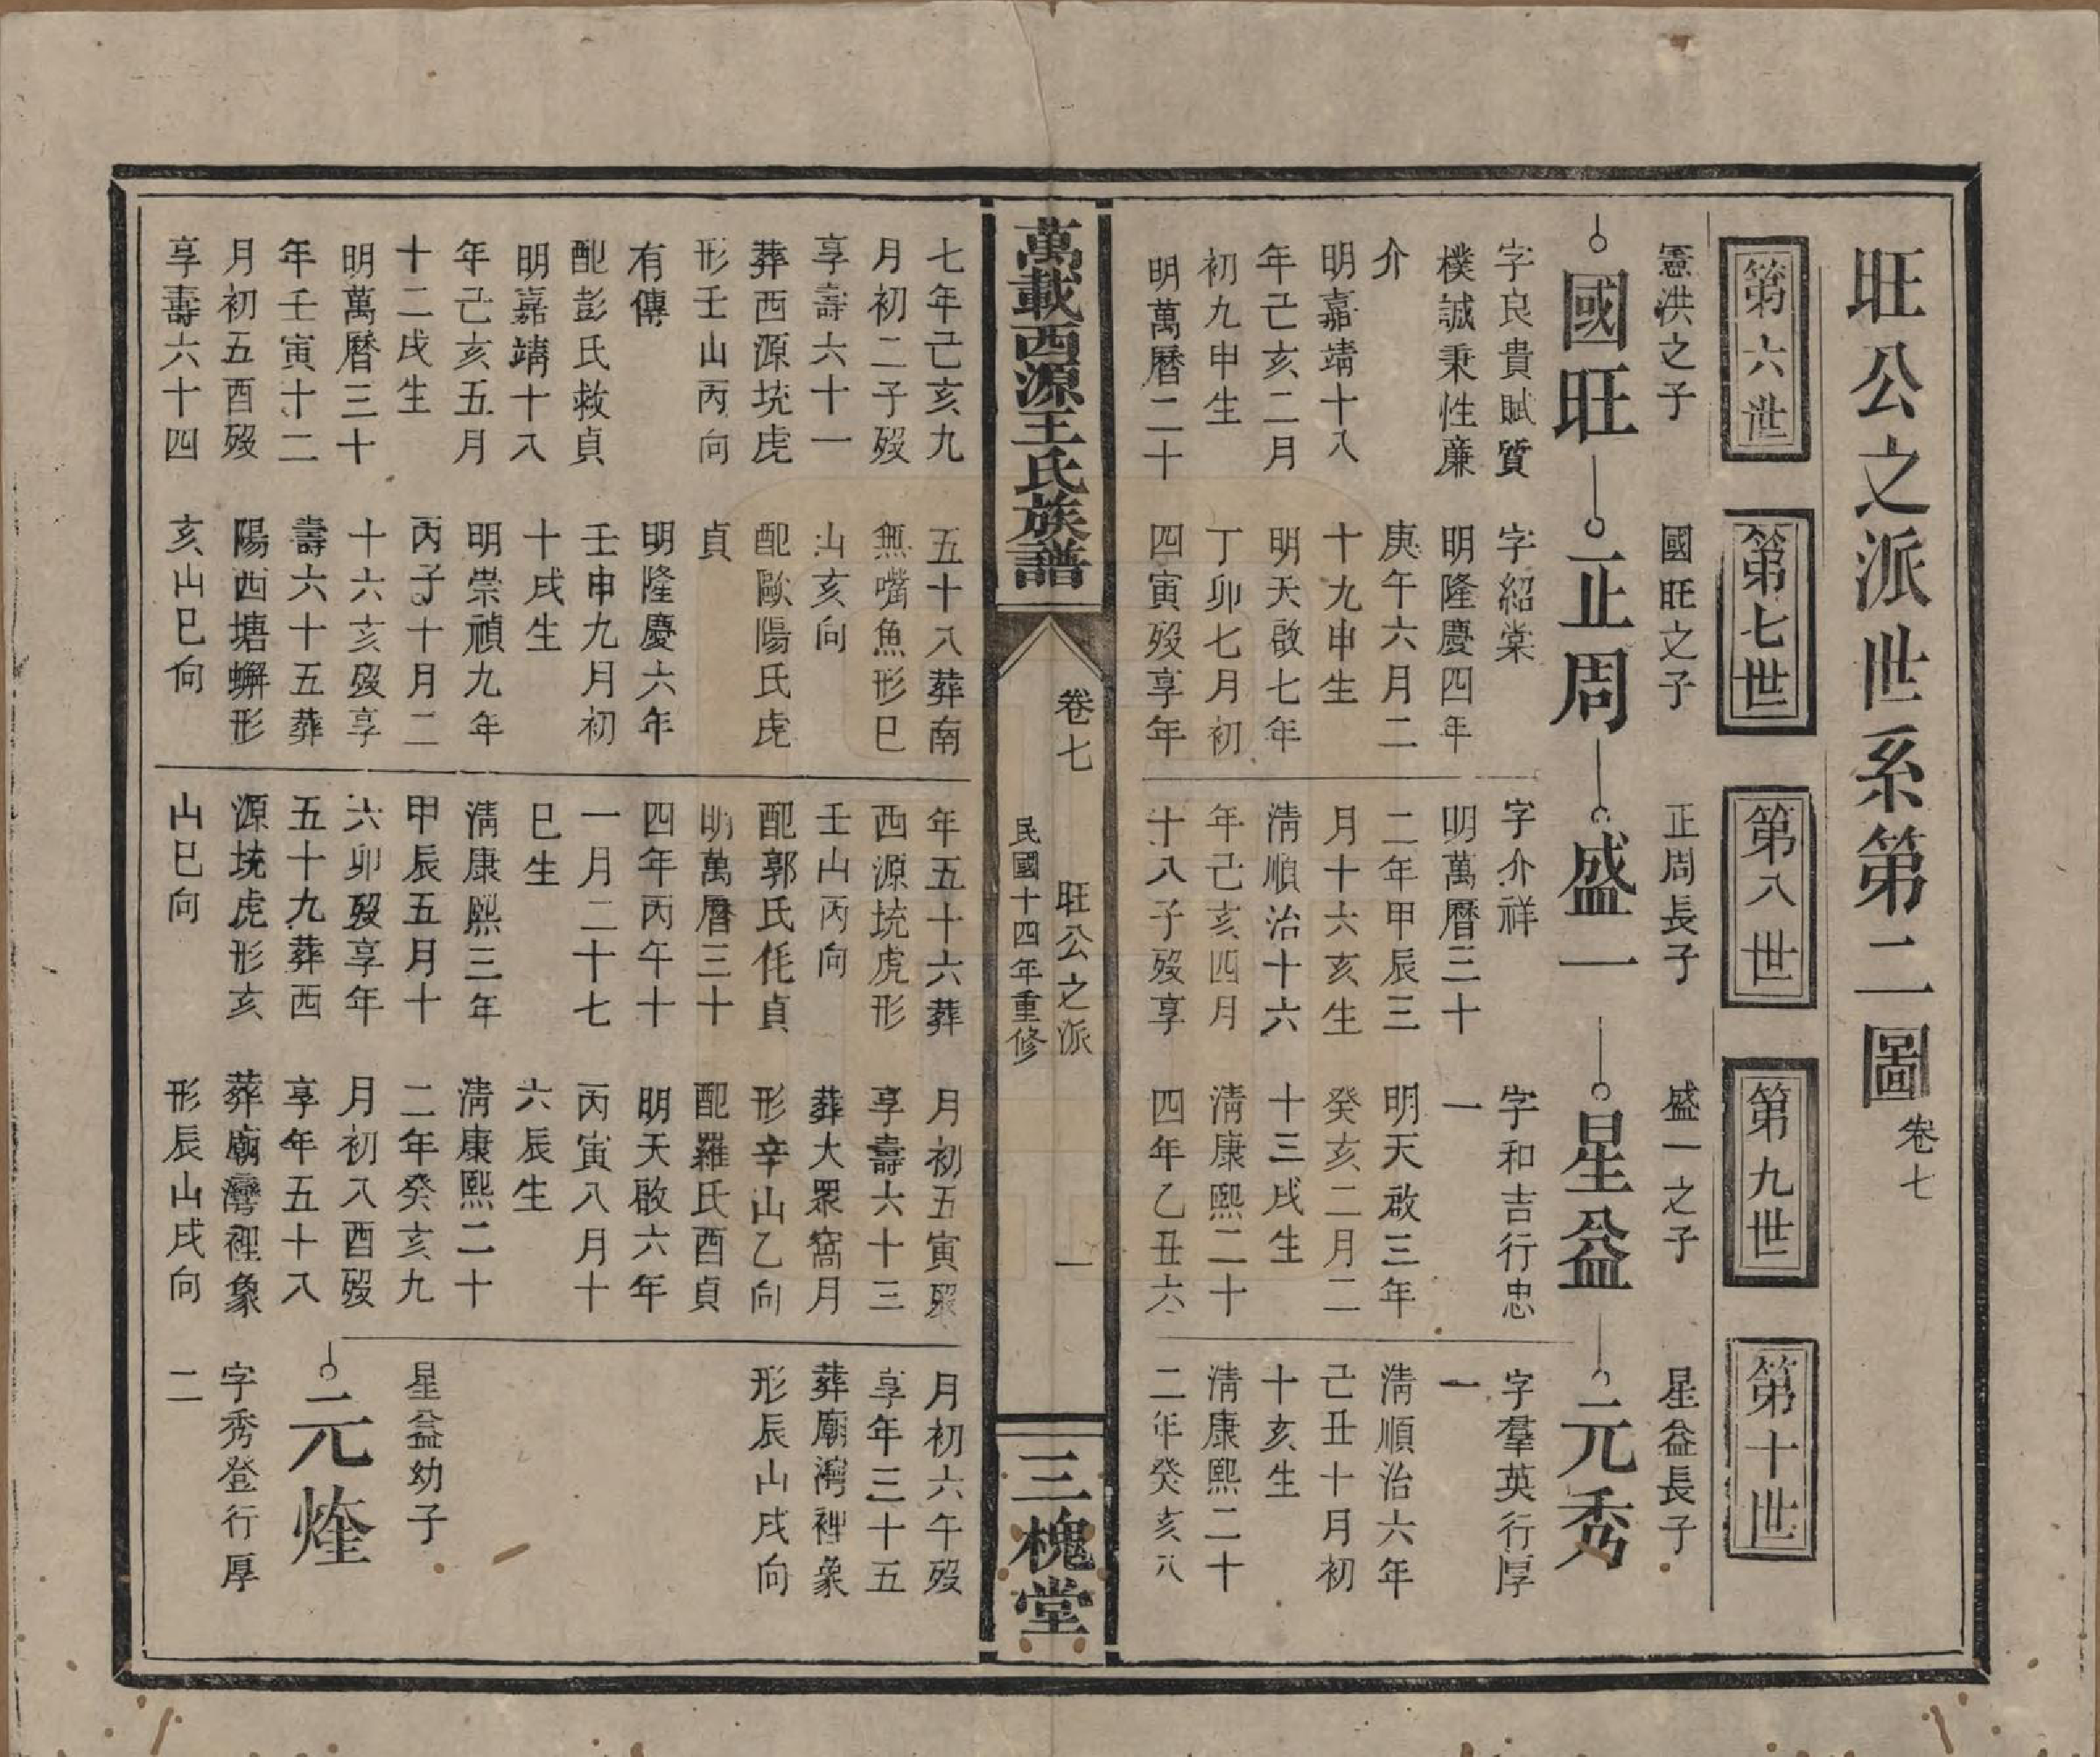 旺公之派世系第二圖 卷七
第六世
第七世
第八世
第九世
第十世
憲洪之子
國旺
字良貴賦質
樸誠秉性廉
介
明嘉靖十八
年己亥二月
初九申生
明萬曆二十
七年己亥九
月初二子歿
享壽六十一
葬西源坑虎
形壬山丙向
有傳
配彭氏救貞
明嘉靖十八
年己亥五月
十二戌生
明萬曆三十
年壬寅十二
月初五酉歿
享壽六十四
國旺之子
正周
字紹棠
明隆慶四年
庚午六月二
十九申生
明天啟七年
丁卯七月初
四寅歿享年
五十八葬南
無嘴魚形巳
山亥向
配歐陽氏虎
貞
明隆慶六年
壬申九月初
十戌生
明崇禎九年
丙子十月二
十六亥歿享
壽六十五葬
陽西塘螄形
亥山巳向
正周長子
盛一
字介祥
明萬曆三十
二年甲辰三
月十六亥生
清順治十六
年己亥四月
十八子歿享
年五十六葬
西源坑虎形
壬山丙向
配郭氏仛貞
明萬曆三十
四年丙午十
一月二十七
巳生
清康熙三年
甲辰五月十
六卯歿享年
五十九葬西
源坑虎形亥
山巳向
盛一之子
星益
字和吉行忠
一
明天啟三年
癸亥二月二
十三戌生
清康熙二十
四年乙丑六
月初五寅歿
享壽六十三
葬大眾窩月
形辛山乙向
配羅氏酉貞
明天啟六年
丙寅八月十
六辰生
清康熙二十
二年癸亥九
月初八酉歿
享年五十八
葬廟灣裡象
形辰山戌向
星益長子
元秀
字羣英行厚
一
清順治六年
己丑十月初
十亥生
清康熙二十
二年癸亥八
月初六午歿
享年三十五
葬廟灣裡象
形辰山戌向
星益幼子
元烇
字秀登行厚
二
萬載西源王氏族譜
卷七
旺公之派
一
民國十四年重修
三槐堂